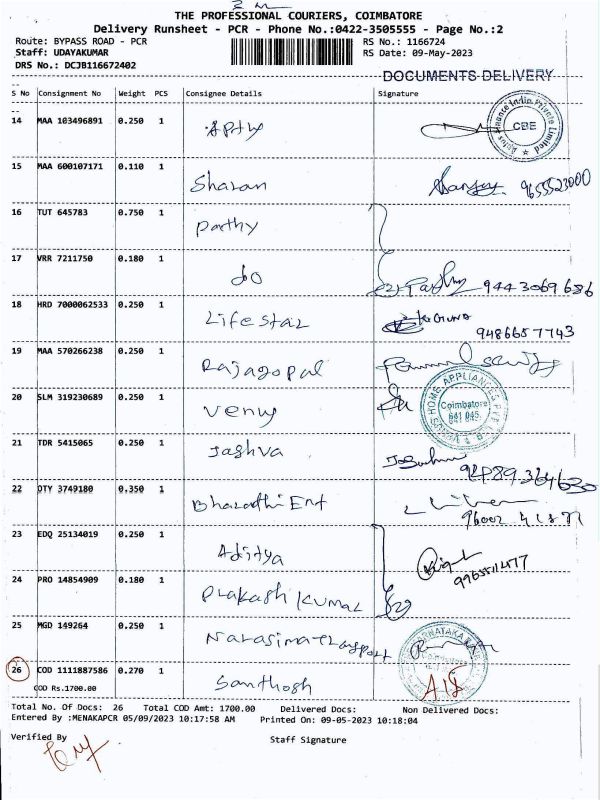 THE PROFESSIONAL COURIERS, COIMBATORE
Delivery Runsheet - PCR - Phone No.:0422-3505555 - Page No.:2
Route: BYPASS ROAD - PCR
RS No.: 1166724
Staff: UDAYAKUMAR
RS Date: 09-May-2023
DRS No.: DCJB116672402
DOCUMENTS DELIVERY
S No Consignment No Weight PCS Consignee Details Signature
14 MAA 103496891 0.250 1
CBE
15 MAA 600107171 0.110 1
Sharan
9655523000
16 TUT 645783 0.750 1
Parthy
17 VRR 7211750 0.180 1
do
9443069686
18 HRD 7000062533 0.250 1
Lifestar
9486657743
19 MAA 570266238 0.250 1
Rajagopal
20 SLM 319230689 0.250 1
Venu
HOME APPLIANCES
Coimbatore
641 045.
21 TDR 5415065 0.250 1
Jashva
22 OTY 3749180 0.350 1
Bharathi Ent
23 EDQ 25134019 0.250 1
Aditya
24 PRO 14854909 0.180 1
Prakash Kumar
25 MGD 149264 0.250 1
Narasima Transport
26 COD 1111887586 0.270 1
Santhosh
COD Rs.1700.00
Total No. Of Docs: 26 Total COD Amt: 1700.00 Delivered Docs: Non Delivered Docs:
Entered By :MENAKAPCR 05/09/2023 10:17:58 AM Printed On: 09-05-2023 10:18:04
Verified By
Staff Signature